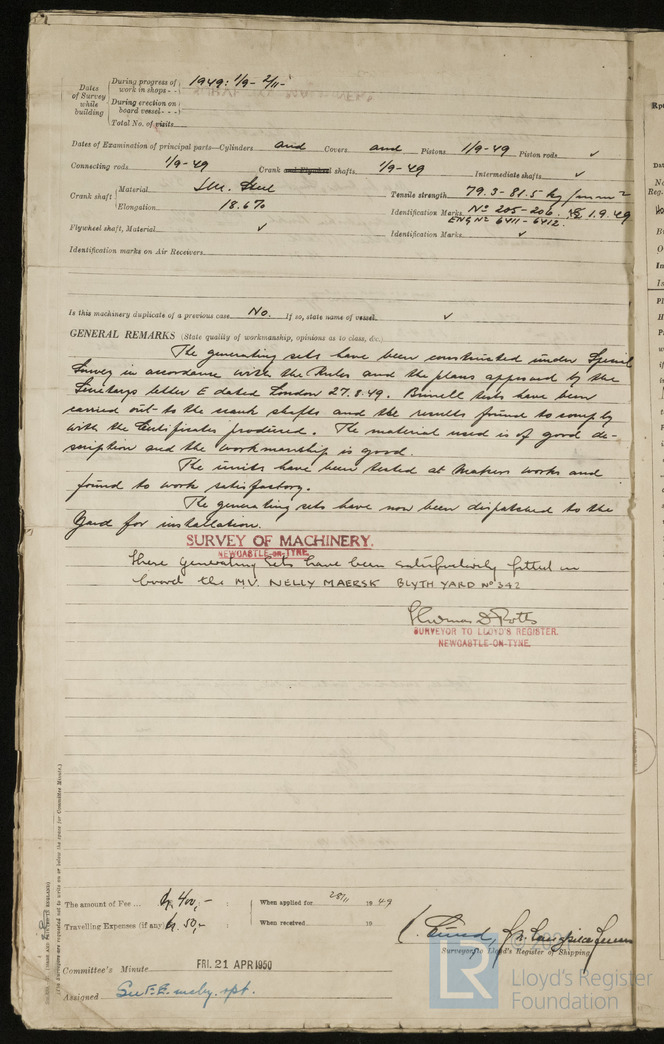 Dates of Survey while building
During progress of work in shops - - 1949: 1/9 - 2/11 -
During erection on board vessel - - -
Total No. of visits
Dates of Examination of principal parts—Cylinders and Covers and Pistons 1/9-49 Piston rods ✓
Connecting rods 1/9-49 Crank and Flywheel shafts 1/9-49 Intermediate shafts ✓
Crank shaft Material S.M. Steel Tensile strength 79.3 - 81.5 kg/mm²
Elongation 18.6% Identification Marks No 205-206. 1.9.49
ENG No 6411 - 6412.
Flywheel shaft, Material ✓ Identification Marks ✓
Identification marks on Air Receivers
Is this machinery duplicate of a previous case No. If so, state name of vessel ✓
GENERAL REMARKS (State quality of workmanship, opinions as to class, &c.
The generating sets have been constructed under Special
Survey in accordance with the Rules and the plans approved by the
Secretarys letter E dated London 27.8.49. Brinell tests have been
carried out to the crank shafts and the results found to comply
with the Certificates produced. The material used is of good de-
scription and the workmanship is good.
The units have been tested at Makers works and
found to work satisfactory.
The generating sets have now been dispatched to the
Yard for installation.
SURVEY OF MACHINERY.
NEWCASTLE-ON-TYNE.
These generating sets have been satisfactorily fitted on
board the MV. NELLY MAERSK BLYTH YARD No 342
Thomas D Potts
SURVEYOR TO LLOYD'S REGISTER.
NEWCASTLE-ON-TYNE.
The amount of Fee ... Kr. 400,- : When applied for 28/11 19 49
Travelling Expenses (if any) Kr. 50,- : When received 19
Surveyor to Lloyd's Register of Shipping
Committee's Minute FRI. 21 APR 1950
Assigned See F.E. mchy. rpt.
(The Surveyors are requested not to write on or below the space for Committee Minute.)
LR
Lloyd's Register
Foundation